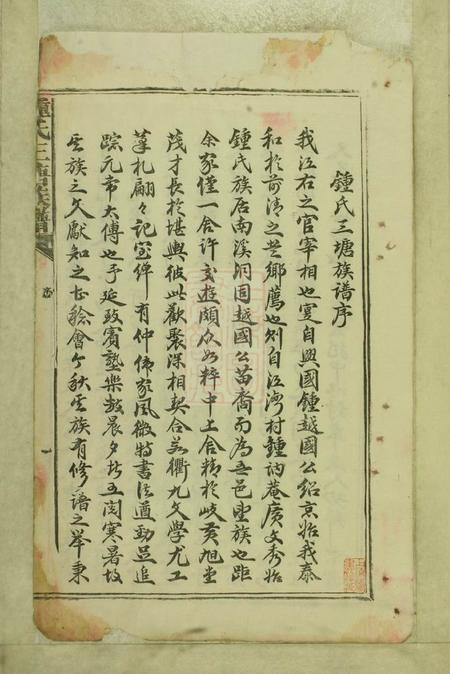 鍾氏三塘族譜序
我江右之官宰相也寔自興國鍾越國公紹京始我泰
和於前清之世鄉薦也則自江灣村鍾訥菴廣文秀始
鍾氏族居南溪洞固越國公苗裔而為吾邑望族也距
余家僅一舍許交遊頗众如粹中上舍精於岐黃旭堂
茂才長於堪輿彼此歡聚深相契合若衢九文學尤工
筆札翩々記室俾有仲偉家風微特書法遒勁足追
踪元常太傅也予延致賓塾樂數晨夕於五閱寒暑故
其族之文獻知之甚稔會今秋其族有修譜之舉秉
鍾氏三塘族譜
序